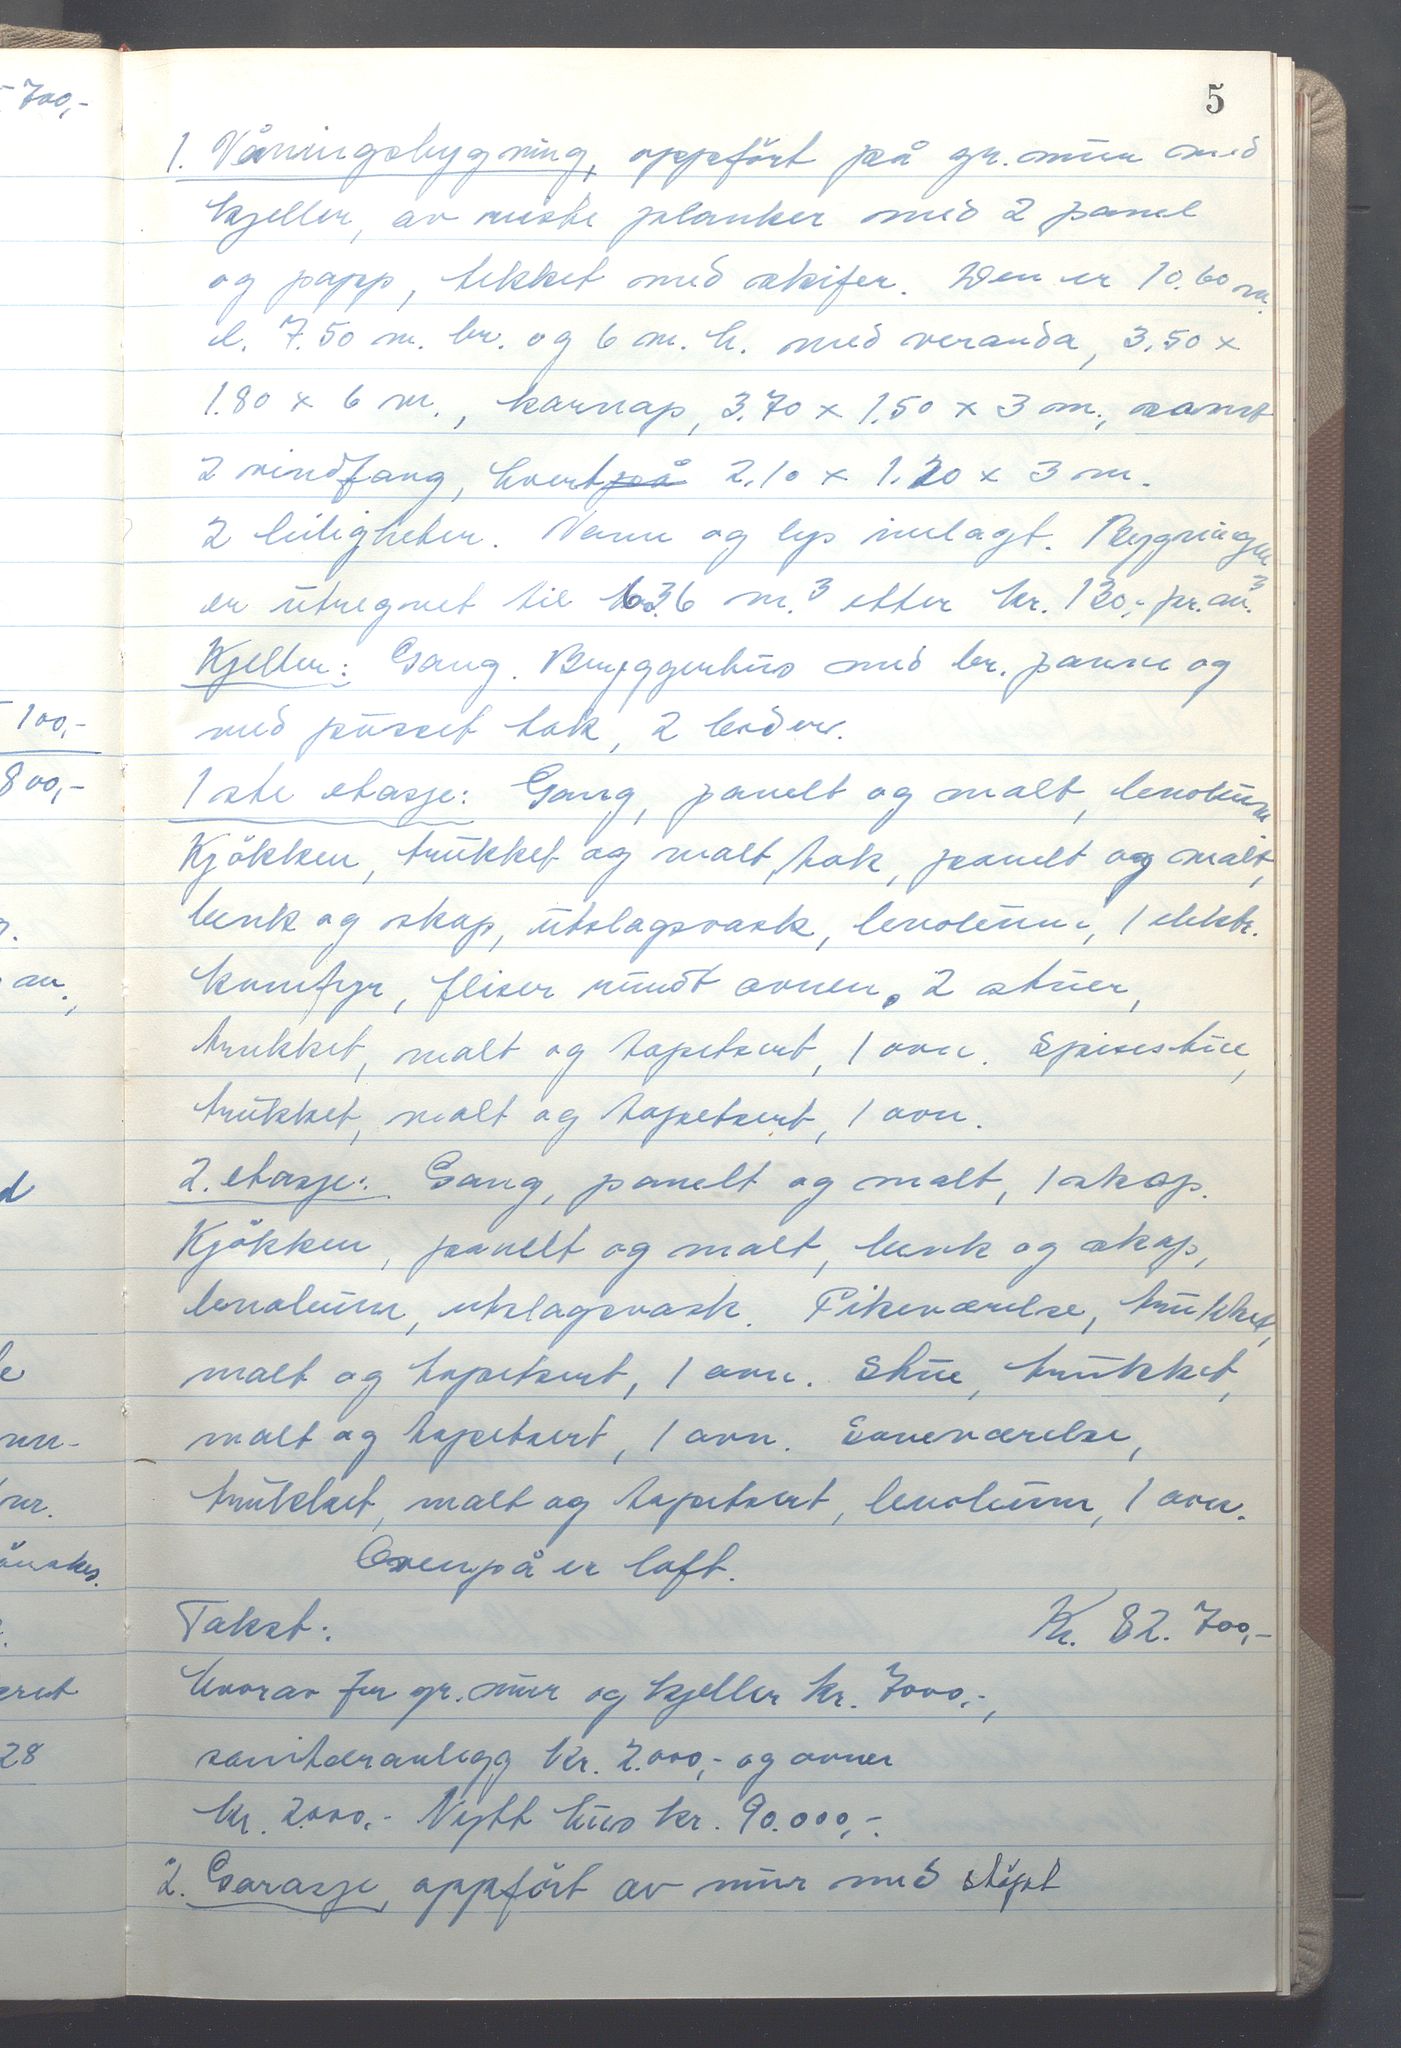 5
1. Våningsbygning, oppfört på gr. mur med
kjeller, av reiste planker med 2 panel
og papp, tekket med skifer. Den er 10.60 m.
l. 7.50 m. br. og 6 m. h. med veranda, 3.50 x
1.80 x 6 m., karnap, 3.70 x 1.50 x 3 m., samt
2 vindfang, hvert på 2.10 x 1.20 x 3 m.
2 leiligheter. Vann og lys innlagt. Bygningen
er utregnet til 636 m.³ etter kr. 130,- pr. m.³
Kjeller: Gang. Bryggerhus med br. panne og
med pusset tak, 2 boder.
1ste etasje: Gang, panelt og malt, lenoleum
Kjökken, trukket og malt, tak, panelt og malt,
benk og skap, utslagsvask, lenoleum, 1 elektr.
komfyr, fliser rundt ovnen. 2 stuer,
trukket, malt og tapetsert, 1 ovn. Spisestue,
trukket, malt og tapetsert, 1 ovn.
2. etasje: Gang, panelt og malt, 1 skap.
Kjökken, panelt og malt, benk og skap,
lenoleum, utslagsvask. Pikeværelse, trukket,
malt og tapetsert, 1 ovn. Stue, trukket,
malt og tapetsert, 1 ovn. Soveværelse,
trukket, malt og tapetsert, lenoleum, 1 ovn.
Ovenpå er loft.
Takst: Kr. 82.700,-
hvorav for gr. mur og kjeller kr. 7000,-,
sanitæranlegg kr. 2.000,- og ovner
kr. 2000,- Nytt hus kr. 90.000,-.
2. Garasje, oppfört av mur med stöpt
700,-
100,-
800,-
28